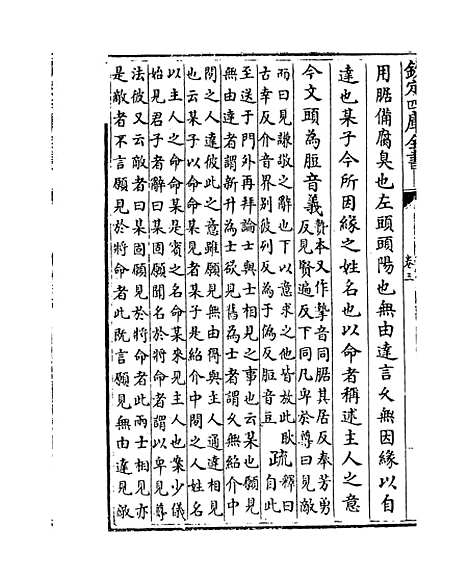 欽定四庫全書
卷三
用腒備腐臭也左頭頭陽也無由達言久無因緣以自
達也某子今所因緣之姓名也以命者稱述主人之意
今文頭為脰音義贄本又作摯音同腒其居反奉芳勇
反見賢遍反下同凡卑於尊曰見敵
而曰見謙敬之辭也下以意求之他皆放此耿
古幸反介音界别彼列反為于偽反脰音豆
疏釋曰
自此
至送于門外再拜論士與士相見之事也云某也願見
無由達者謂新升為士欲見舊為士者謂久無紹介中
間之人達彼此之意雖願見無由得與主人通達相見
也云某子以命命某見者某子是紹介中間之人姓名
以主人之命命某是賓之名命某來見主人也案少儀
始見君子者辭曰某固願聞名於將命者謂以卑見尊
法彼又云敵者曰某固願見於將命者此兩士相見亦
是敵者不言願見於將命者此既言願見無由達見敵